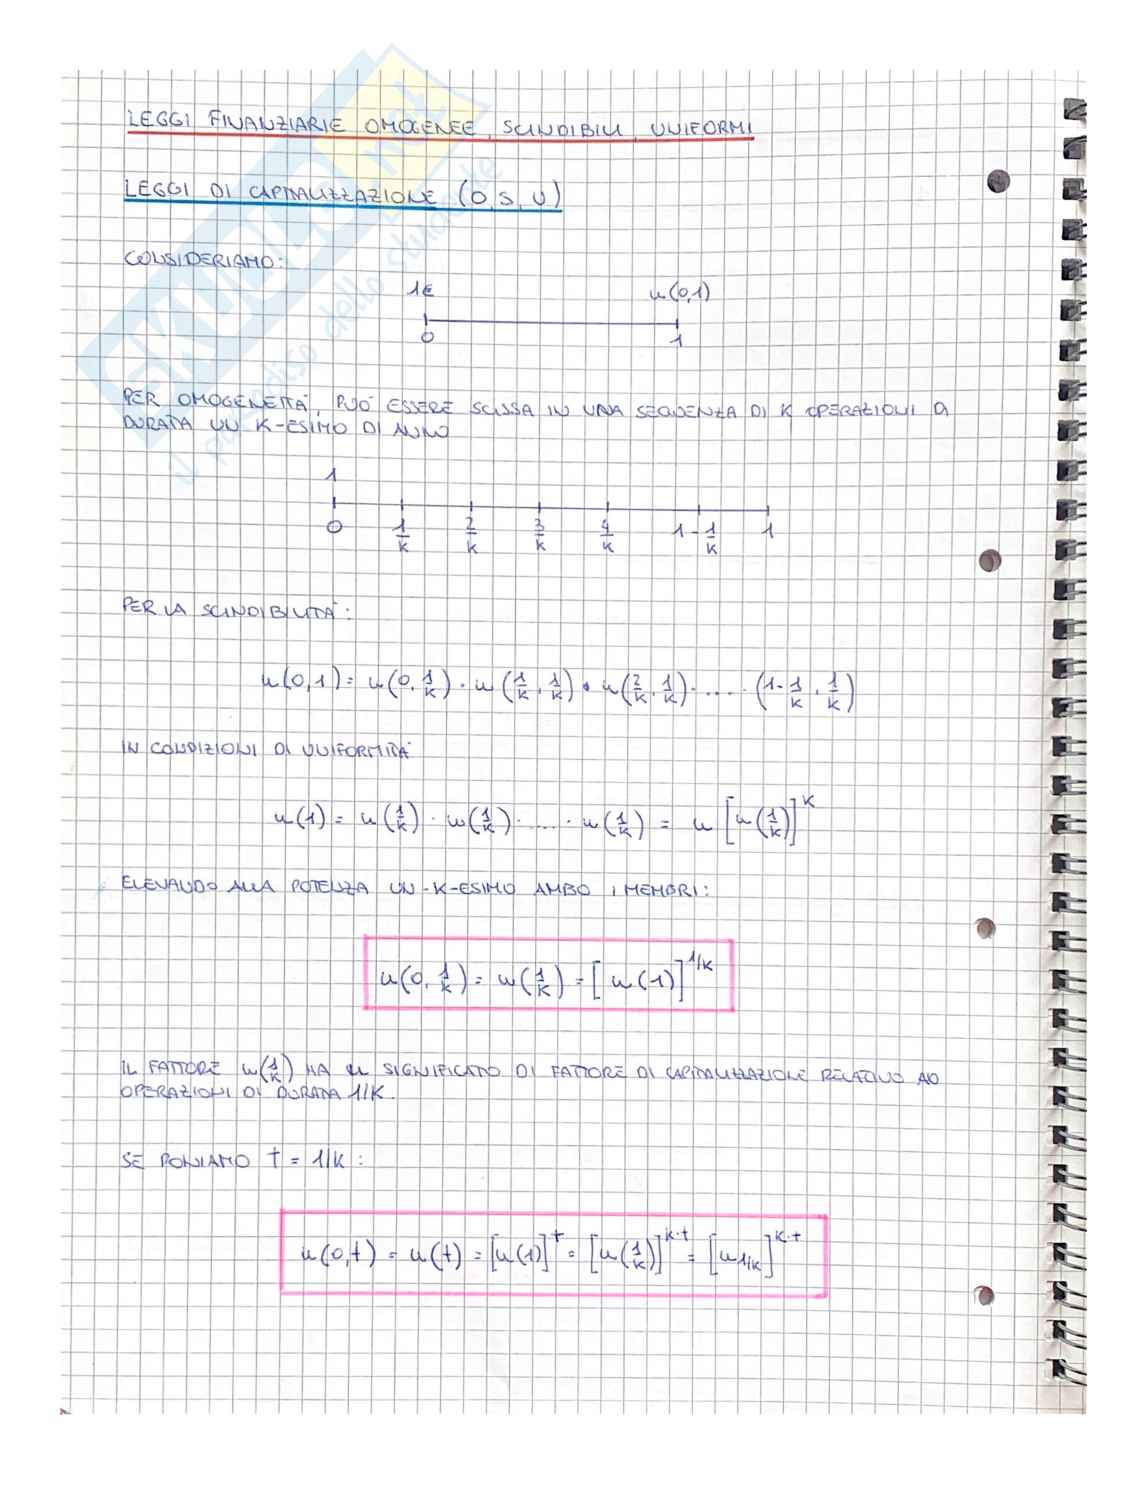 LEGGI FINANZIARIE OMOGENEE, SCINDIBILI, UNIFORMI
LEGGI DI CAPITALIZZAZIONE (O,S,U)
CONSIDERIAMO:
1€ u(0,1)
0 1
PER OMOGENEITÀ, PUÒ ESSERE SCISSA IN UNA SEQUENZA DI K OPERAZIONI DI
DURATA UN K-ESIMO DI ANNO
1
0 1/K 2/K 3/K 4/K 1-1/K 1
PER LA SCINDIBILITÀ:
u(0,1) = u(0,1/K) · u(1/K,1/K) · u(2/K,1/K) · .... · (1-1/K,1/K)
IN CONDIZIONI DI UNIFORMITÀ
u(1) = u(1/K) · u(1/K) · .... · u(1/K) = u [u(1/K)]^K
ELEVANDO ALLA POTENZA UN-K-ESIMO AMBO I MEMBRI:
u(0,1/K) = u(1/K) = [u(1)]^1/K
IL FATTORE u(1/K) HA IL SIGNIFICATO DI FATTORE DI CAPITALIZZAZIONE RELATIVO AD
OPERAZIONI DI DURATA 1/K.
SE PONIAMO t = 1/K :
u(0,t) = u(t) = [u(1)]^t = [u(1/K)]^K·t = [u1/K]^K·t
SKUOLA.net
il paradiso dello studente